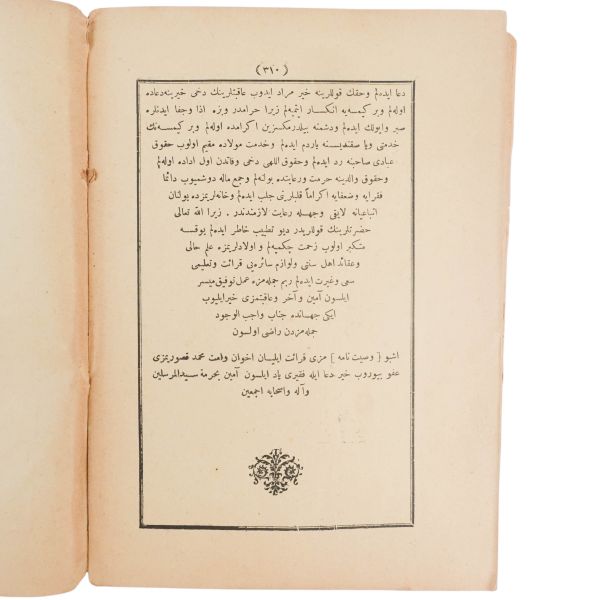 (٣١٠)
دعا ایده‌لم وحقك قوللرینه خیر مراد ایدوب عاقبتلرینك دخی خیرینه‌دعاده
اوله‌لم وبر کیمسه‌یه انکسار ایتمیه‌لم زیرا حرامدر وبزه اذا وجفا ایدنلره
صبر وایولك ایده‌لم ودشمنه بیلدرمکسزین اکرامده اوله‌لم وبر کیمسه‌نك
خدمتی ویا صقندیسنه یاردم ایده‌لم وخدمت مولاده مقیم اولوب حقوق
عبادی صاحبنه رد ایده‌لم وحقوق اللهی دخی وفاتدن اول اداده اوله‌لم
وحقوق والدینه حرمت ورعایتده بولنه‌لم وجمع ماله دوشمیوب دائما
فقرایه وضعفایه اکراماً قلبلرینی جلب ایده‌لم وخانه‌لریمزده بولنان
اتباعیانه لایقی وجهله رعایت لازمندندر . زیرا الله تعالی
حضرتلرینك قوللریدر دیو تطییب خاطر ایده‌لم یوقسه
متکبر اولوب زحمت چکمیه‌لم و اولادلریمزه علم حالی
وعقائد اهل سنی ولوازم سائره‌یی قرائت وتعلیمی
سعی وغیرت ایده‌لم ربم جمله‌مزه عمل توفیق میسر
ایلسون آمین وآخر وعاقبتمزی خیر ایلیوب
ایکی جهانده جناب واجب الوجود
جمله‌مزدن راضی اولسون
اشبو [ وصیت نامه ] مزی قرائت ایلیان اخوان وامت محمد قصوریمزی
عفو بیوروب خیر دعا ایله فقیری یاد ایلسون آمین بحرمة سید المرسلین
وآله واصحابه اجمعین